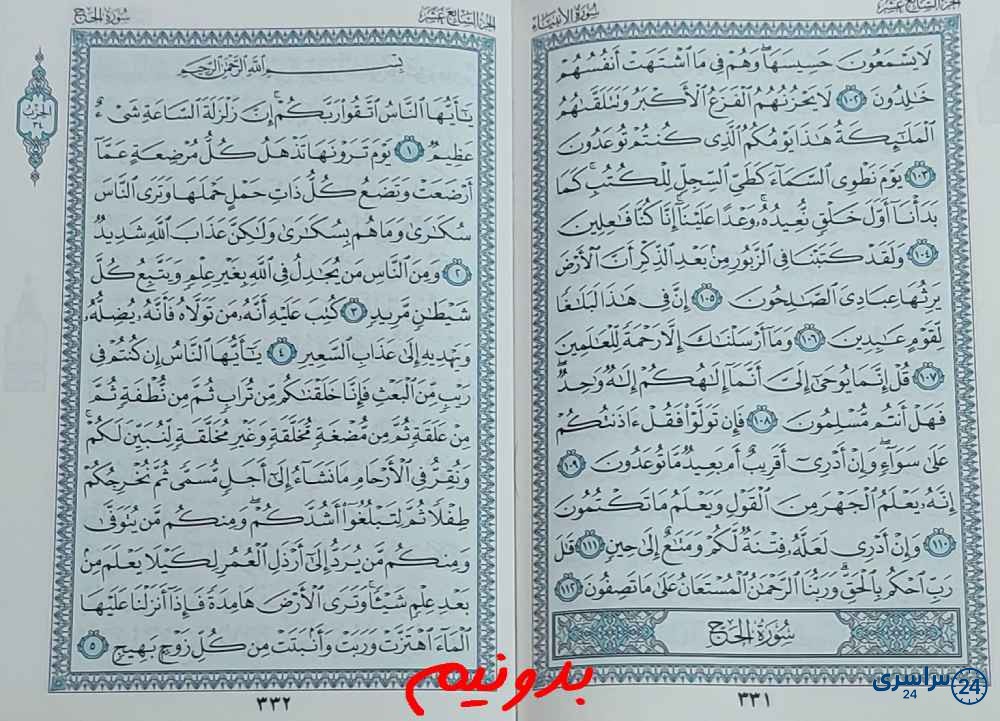 الجزء السابع عشر
سورة الأنبياء
لَا يَسْمَعُونَ حَسِيسَهَا ۖ وَهُمْ فِي مَا ٱشْتَهَتْ أَنفُسُهُمْ
خَٰلِدُونَ ١٠٢ لَا يَحْزُنُهُمُ ٱلْفَزَعُ ٱلْأَكْبَرُ وَتَتَلَقَّىٰهُمُ
ٱلْمَلَٰٓئِكَةُ هَٰذَا يَوْمُكُمُ ٱلَّذِي كُنتُمْ تُوعَدُونَ
١٠٣ يَوْمَ نَطْوِي ٱلسَّمَآءَ كَطَيِّ ٱلسِّجِلِّ لِلْكُتُبِ ۚ كَمَا
بَدَأْنَآ أَوَّلَ خَلْقٍ نُّعِيدُهُۥ ۚ وَعْدًا عَلَيْنَآ ۚ إِنَّا كُنَّا فَٰعِلِينَ
١٠٤ وَلَقَدْ كَتَبْنَا فِي ٱلزَّبُورِ مِنۢ بَعْدِ ٱلذِّكْرِ أَنَّ ٱلْأَرْضَ
يَرِثُهَا عِبَادِيَ ٱلصَّٰلِحُونَ ١٠٥ إِنَّ فِي هَٰذَا لَبَلَٰغًا
لِّقَوْمٍ عَٰبِدِينَ ١٠٦ وَمَآ أَرْسَلْنَٰكَ إِلَّا رَحْمَةً لِّلْعَٰلَمِينَ
١٠٧ قُلْ إِنَّمَا يُوحَىٰٓ إِلَيَّ أَنَّمَآ إِلَٰهُكُمْ إِلَٰهٌ وَٰحِدٌ ۖ
فَهَلْ أَنتُم مُّسْلِمُونَ ١٠٨ فَإِن تَوَلَّوْا۟ فَقُلْ ءَاذَنتُكُمْ
عَلَىٰ سَوَآءٍ ۖ وَإِنْ أَدْرِيٓ أَقَرِيبٌ أَم بَعِيدٌ مَّا تُوعَدُونَ ١٠٩
إِنَّهُۥ يَعْلَمُ ٱلْجَهْرَ مِنَ ٱلْقَوْلِ وَيَعْلَمُ مَا تَكْتُمُونَ
١١٠ وَإِنْ أَدْرِي لَعَلَّهُۥ فِتْنَةٌ لَّكُمْ وَمَتَٰعٌ إِلَىٰ حِينٍ ١١١ قَٰلَ
رَبِّ ٱحْكُم بِٱلْحَقِّ ۗ وَرَبُّنَا ٱلرَّحْمَٰنُ ٱلْمُسْتَعَانُ عَلَىٰ مَا تَصِفُونَ ١١٢
سُورَةُ الحَجّ
٣٣١
سورة الحج
الجزء السابع عشر
الحزب ٣٤
بِسْمِ ٱللَّهِ ٱلرَّحْمَٰنِ ٱلرَّحِيمِ
يَٰٓأَيُّهَا ٱلنَّاسُ ٱتَّقُوا۟ رَبَّكُمْ ۚ إِنَّ زَلْزَلَةَ ٱلسَّاعَةِ شَيْءٌ
عَظِيمٌ ١ يَوْمَ تَرَوْنَهَا تَذْهَلُ كُلُّ مُرْضِعَةٍ عَمَّآ
أَرْضَعَتْ وَتَضَعُ كُلُّ ذَاتِ حَمْلٍ حَمْلَهَا وَتَرَى ٱلنَّاسَ
سُكَٰرَىٰ وَمَا هُم بِسُكَٰرَىٰ وَلَٰكِنَّ عَذَابَ ٱللَّهِ شَدِيدٌ
٢ وَمِنَ ٱلنَّاسِ مَن يُجَٰدِلُ فِي ٱللَّهِ بِغَيْرِ عِلْمٍ وَيَتَّبِعُ كُلَّ
شَيْطَٰنٍ مَّرِيدٍ ٣ كُتِبَ عَلَيْهِ أَنَّهُۥ مَن تَوَلَّاهُ فَأَنَّهُۥ يُضِلُّهُۥ
وَيَهْدِيهِ إِلَىٰ عَذَابِ ٱلسَّعِيرِ ٤ يَٰٓأَيُّهَا ٱلنَّاسُ إِن كُنتُمْ فِي
رَيْبٍ مِّنَ ٱلْبَعْثِ فَإِنَّا خَلَقْنَٰكُم مِّن تُرَابٍ ثُمَّ مِن نُّطْفَةٍ ثُمَّ
مِنْ عَلَقَةٍ ثُمَّ مِن مُّضْغَةٍ مُّخَلَّقَةٍ وَغَيْرِ مُخَلَّقَةٍ لِّنُبَيِّنَ لَكُمْ ۚ
وَنُقِرُّ فِي ٱلْأَرْحَامِ مَا نَشَآءُ إِلَىٰٓ أَجَلٍ مُّسَمًّى ثُمَّ نُخْرِجُكُمْ
طِفْلًا ثُمَّ لِتَبْلُغُوٓا۟ أَشُدَّكُمْ ۖ وَمِنكُم مَّن يُتَوَفَّىٰ
وَمِنكُم مَّن يُرَدُّ إِلَىٰٓ أَرْذَلِ ٱلْعُمُرِ لِكَيْلَا يَعْلَمَ مِنۢ
بَعْدِ عِلْمٍ شَيْـًٔا ۚ وَتَرَى ٱلْأَرْضَ هَامِدَةً فَإِذَآ أَنزَلْنَا عَلَيْهَا
ٱلْمَآءَ ٱهْتَزَّتْ وَرَبَتْ وَأَنۢبَتَتْ مِن كُلِّ زَوْجٍۭ بَهِيجٍ ٥
٣٣٢
بدونیم
سراسری 24
24